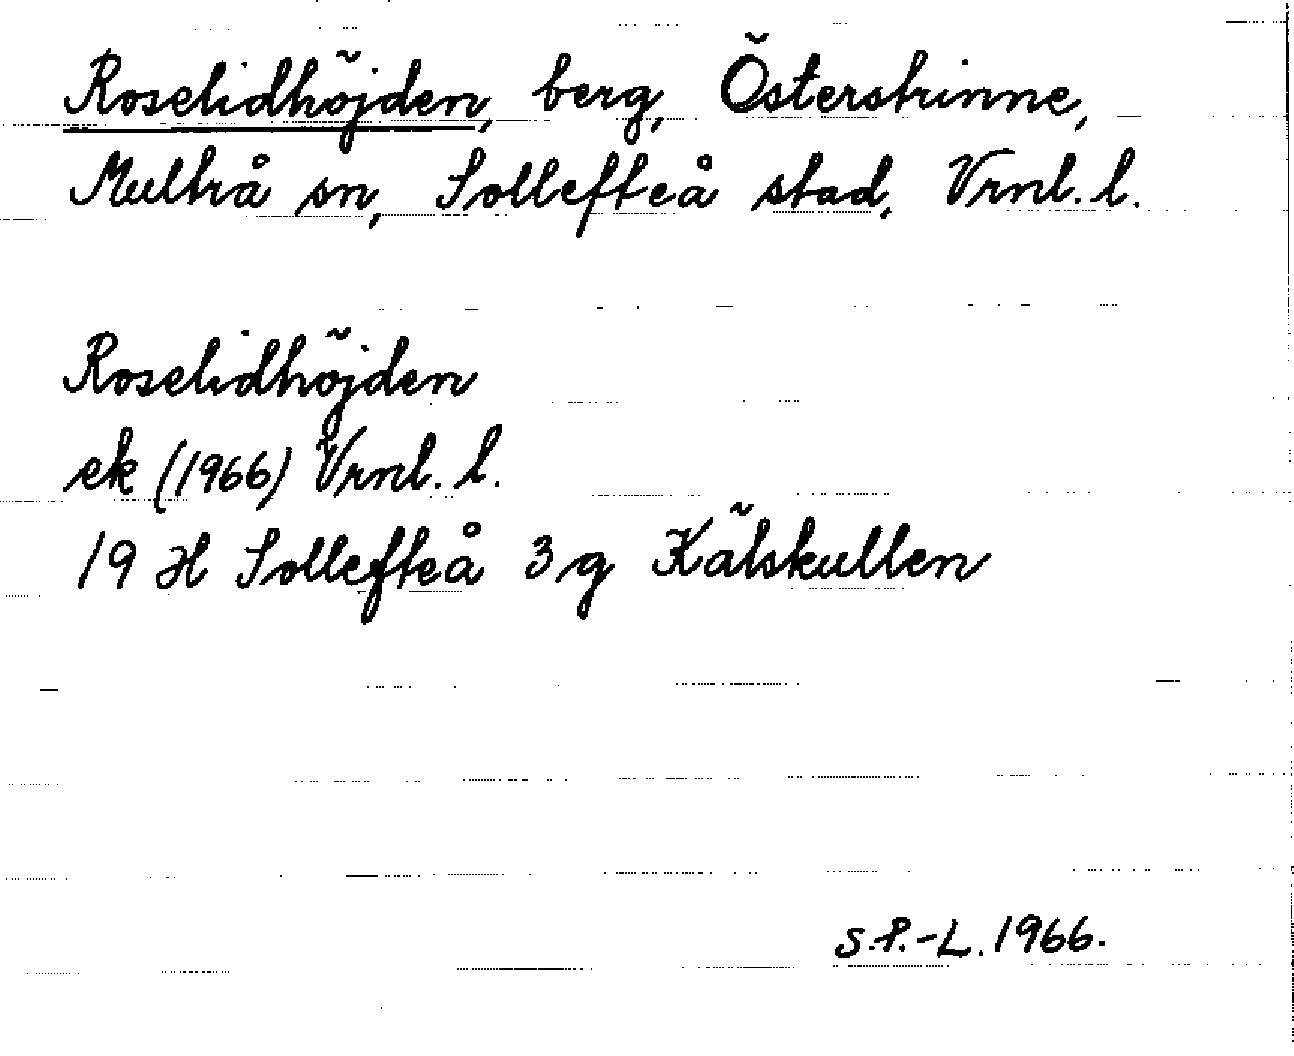 Roselidhöjden, berg, Österstrinne,
Multrå sn, Sollefteå stad, Vrnl. l.
Roselidhöjden
ek (1966) Vrnl. l.
19 H Sollefteå 3g Kälskullen
S.P.-L. 1966.